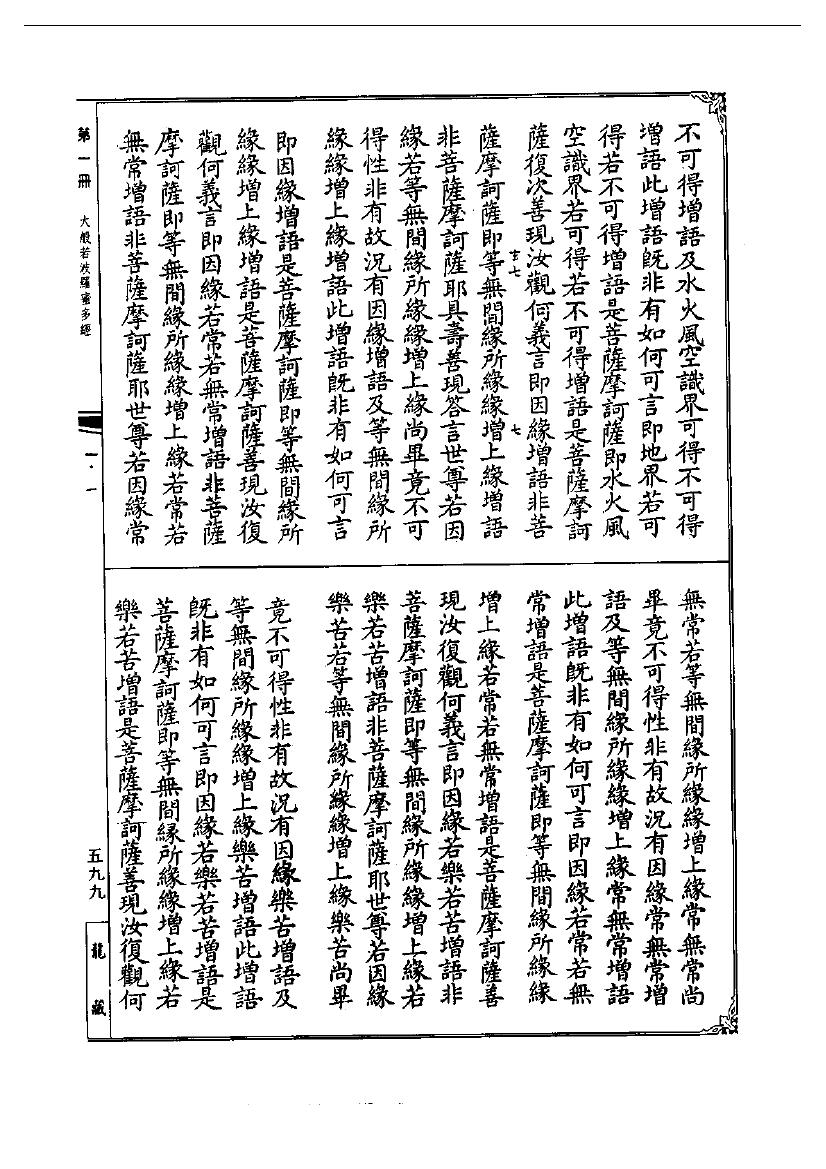 不可得增語及水火風空識界可得不可得
增語此增語旣非有如何可言即地界若可
得若不可得增語是菩薩摩訶薩即水火風
空識界若可得若不可得增語是菩薩摩訶
薩復次善現汝觀何義言即因緣增語非菩
薩摩訶薩即等無間緣所緣緣增上緣增語
非菩薩摩訶薩耶具壽善現答言世尊若因
緣若等無間緣所緣緣增上緣尚畢竟不可
得性非有故況有因緣增語及等無間緣所
緣緣增上緣增語此增語旣非有如何可言
即因緣增語是菩薩摩訶薩即等無間緣所
緣緣增上緣增語是菩薩摩訶薩善現汝復
觀何義言即因緣若常若無常增語非菩薩
摩訶薩即等無間緣所緣緣增上緣若常若
無常增語非菩薩摩訶薩耶世尊若因緣常
玄七
七
無常若等無間緣所緣緣增上緣常無常尚
畢竟不可得性非有故況有因緣常無常增
語及等無間緣所緣緣增上緣常無常增語
此增語旣非有如何可言即因緣若常若無
常增語是菩薩摩訶薩即等無間緣所緣緣
增上緣若常若無常增語是菩薩摩訶薩善
現汝復觀何義言即因緣若樂若苦增語非
菩薩摩訶薩即等無間緣所緣緣增上緣若
樂若苦增語非菩薩摩訶薩耶世尊若因緣
樂苦若等無間緣所緣緣增上緣樂苦尚畢
竟不可得性非有故況有因緣樂苦增語及
等無間緣所緣緣增上緣樂苦增語此增語
旣非有如何可言即因緣若樂若苦增語是
菩薩摩訶薩即等無間緣所緣緣增上緣若
樂若苦增語是菩薩摩訶薩善現汝復觀何
第一冊 大般若波羅蜜多經
一·一
五九九
龍藏